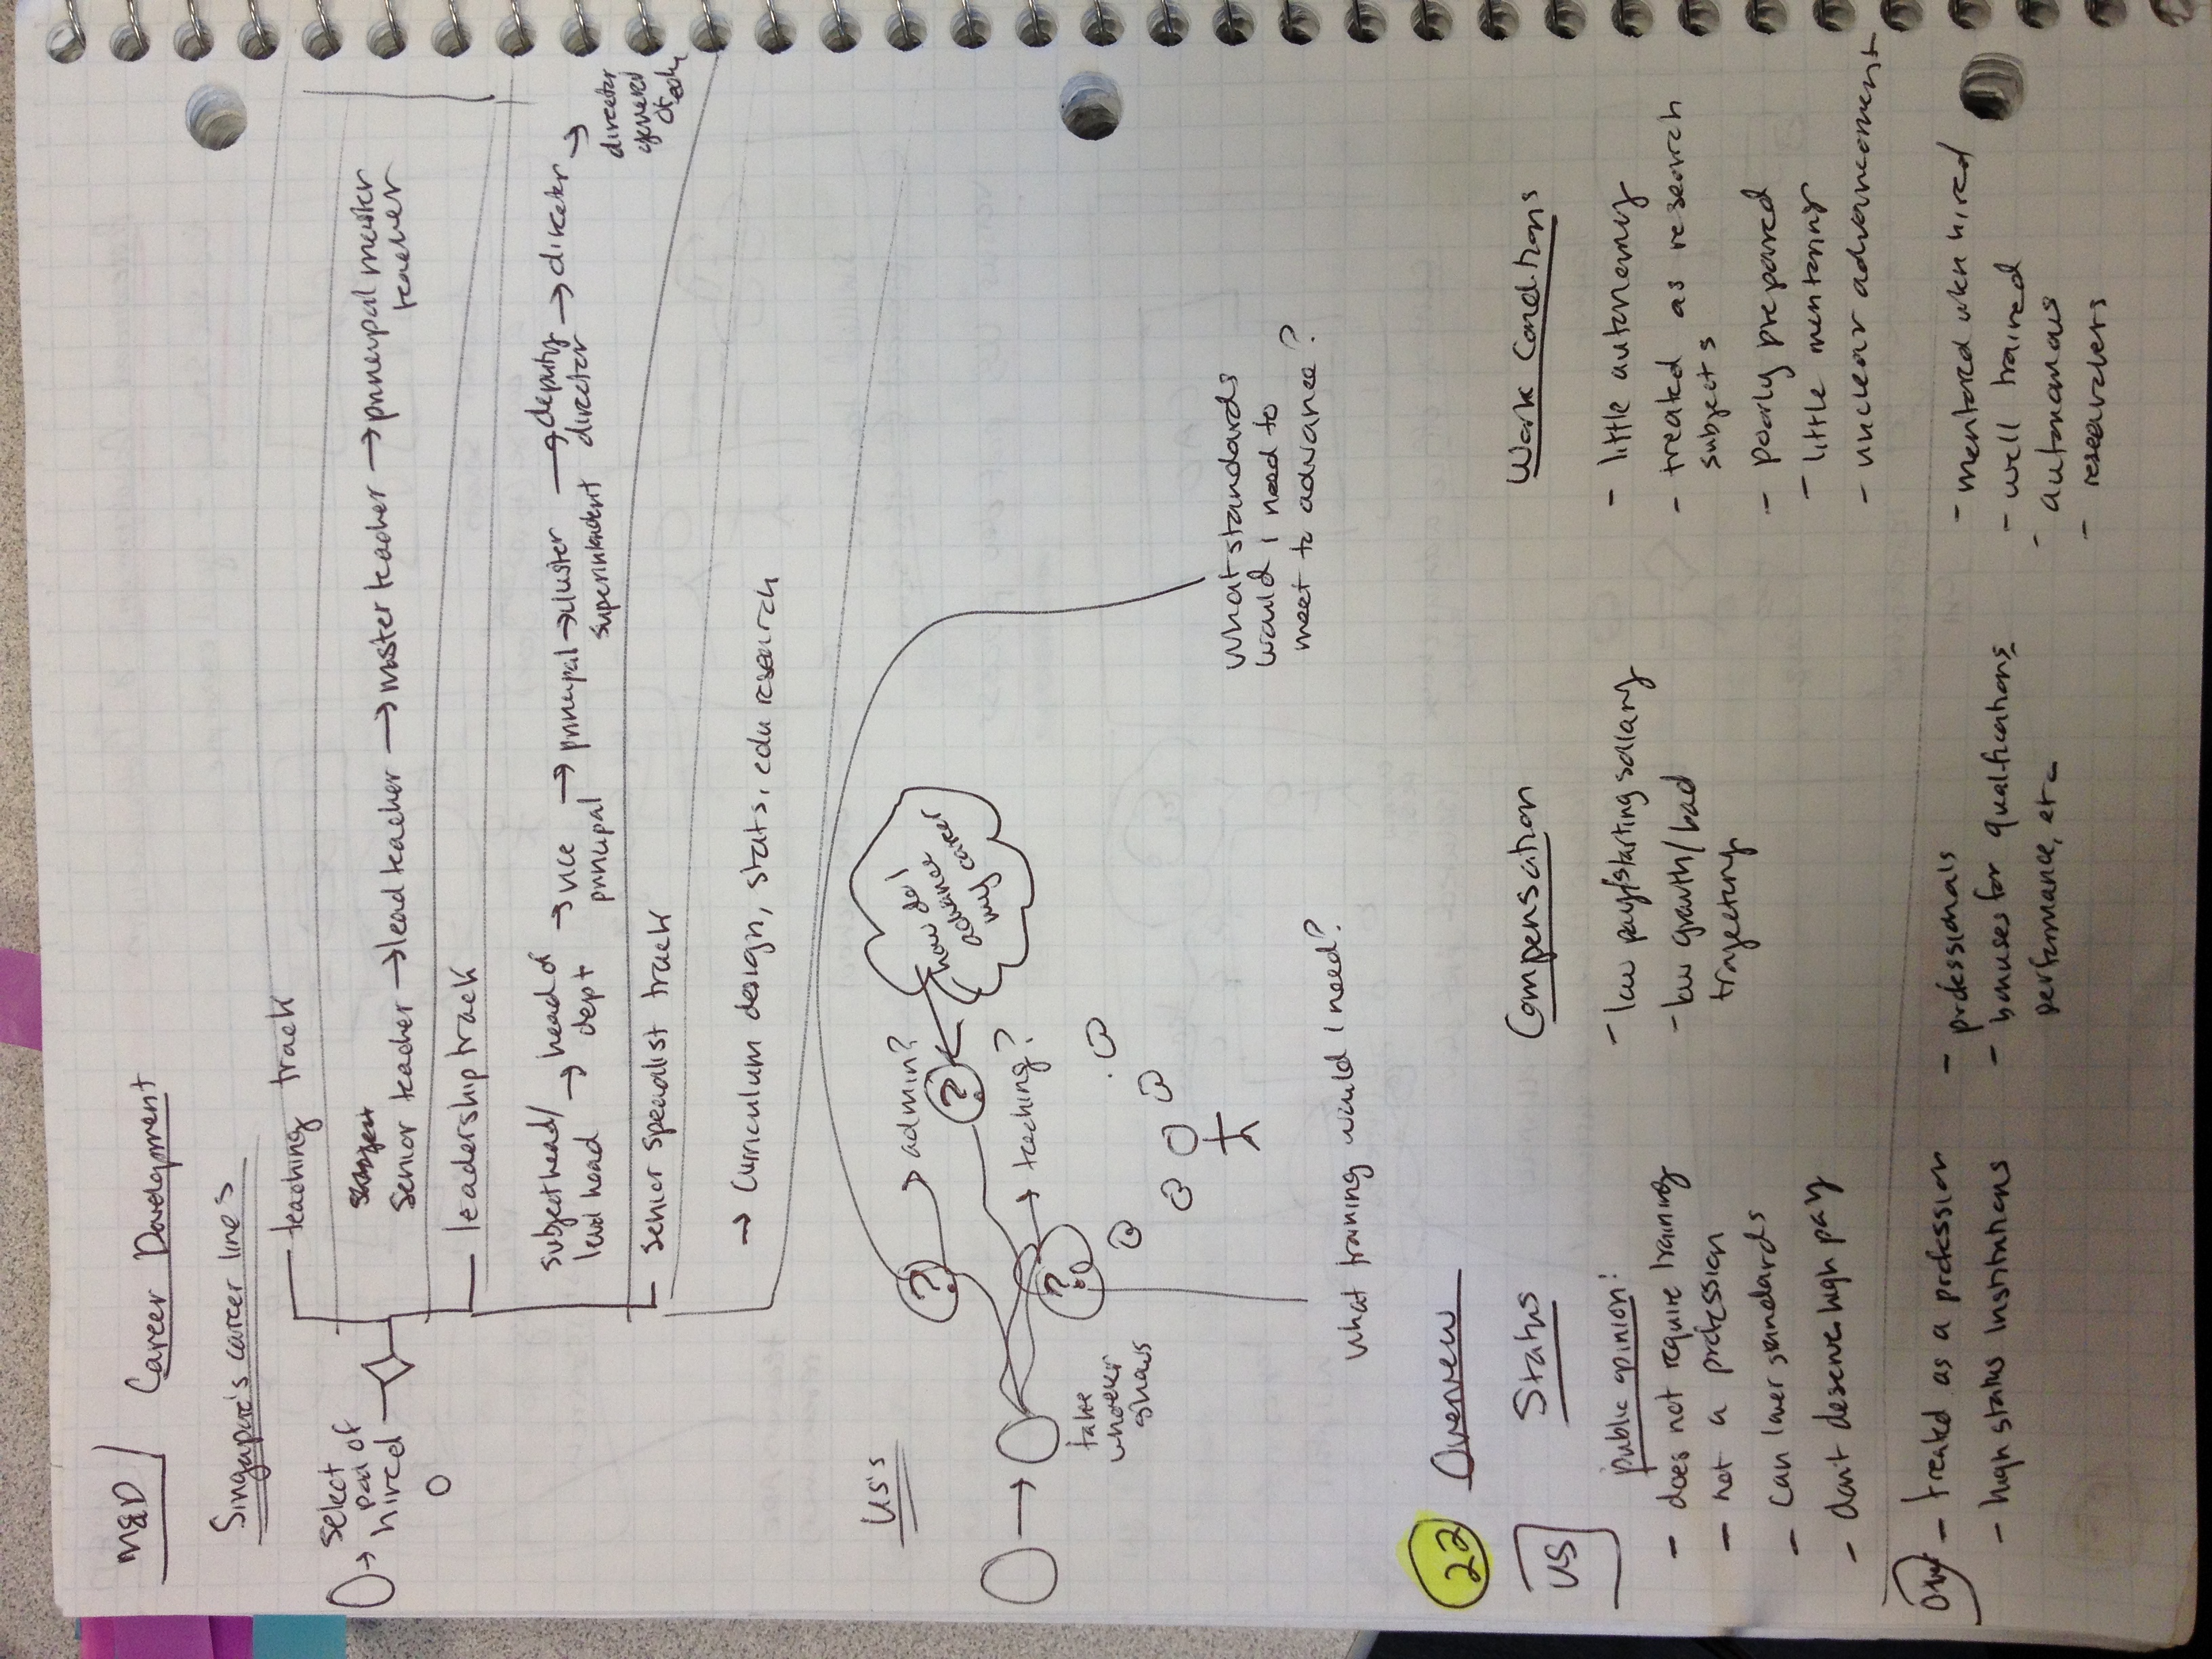 M&D
Career Development
Singapore's career lines
teaching track
select
pool of
hired
senior teacher → lead teacher → master teacher → principal master
teacher
leadership track
subject head/
level head
→ head of
dept
→ vice
principal
→ principal → cluster
superintendent
→ deputy
director
→ director →
director
general
of edu
senior specialist track
→ curriculum design, stats, edu research
US's
? → admin?
?
how do I
advance
my career
→ teaching?
?
take
whoever
shows
What standards
would I need to
meet to advance?
What training would I need?
22 Overview
US
Status
Compensation
Work Conditions
public opinion:
- does not require training
- not a profession
- can lower standards
- don't deserve high pay
- low pay/starting sallary
- low growth/bad
trajectory
- little autonomy
- treated as research
subjects
- poorly prepared
- little mentoring
- unclear advancement
- treated as a profession
- high status institutions
- professionals
- bonuses for qualifications,
performance, etc
- mentored when hired
- well trained
- autonomous
- researchers